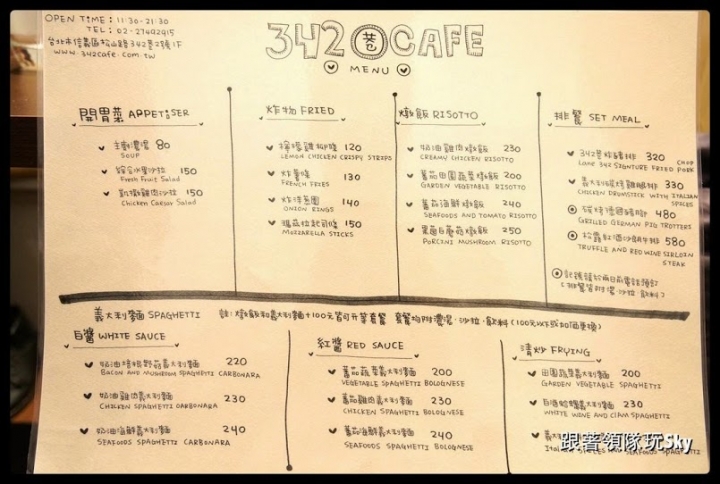 OPEN TIME: 11:30-21:30
TEL: 02-27492915
台北市信義區松山路342巷2號1F
www.342cafe.com.tw
342巷CAFE
MENU
開胃菜 APPETISER
主廚濃湯 80
SOUP
綜合水果沙拉 150
Fresh Fruit Salad
凱撒雞肉沙拉 150
Chicken Caesar Salad
炸物 FRIED
檸檬雞柳條 120
LEMON CHICKEN CRISPY STRIPS
炸薯條 130
FRENCH FRIES
炸洋蔥圈 140
ONION RINGS
瑪茲拉起司條 150
MOZZARELLA STICKS
燉飯 RISOTTO
奶油雞肉燉飯 230
CREAMY CHICKEN RISOTTO
蕃茄田園蔬菜燉飯 200
GARDEN VEGETABLE RISOTTO
蕃茄海鮮燉飯 240
SEAFOODS AND TOMATO RISOTTO
栗茵白蘑菇燉飯 250
PORCINI MUSHROOM RISOTTO
排餐 SET MEAL
342巷炸豬排 320
LANE 342 SIGNTURE FRIED PORK CHOP
義大利碳烤雞腿排 330
CHICKEN DRUMSTICK WITH ITALIAN SPICES
碳烤德國豬腳 480
GRILLED GERMAN PIG TROTTERS
松露紅酒沙朗牛排 580
TRUFFLE AND RED WINE SIRLOIN STEAK
記號請於兩日前電話預訂
(排餐皆附:湯.沙拉.飲料)
義大利麵 SPAGHETTI 註: 燉飯和義大利麵+100元皆可升等套餐 套餐均附濃湯.沙拉.飲料(100元以下或加價更換)
白醬 WHITE SAUCE
奶油培根野菇義大利麵 220
BACON AND MUSHROOM SPAGHETTI CARBONARA
奶油雞肉義大利麵 230
CHICKEN SPAGHETTI CARBONARA
奶油海鮮義大利麵 240
SEAFOODS SPAGHETTI CARBONARA
紅醬 RED SAUCE
蕃茄蔬菜義大利麵 200
VEGETABLE SPAGHETTI BOLOGNESE
蕃茄雞肉義大利麵 230
CHICKEN SPAGHETTI BOLOGNESE
蕃茄海鮮義大利麵 240
SEAFOODS SPAGHETTI BOLOGNESE
清炒 FRYING
田園蔬菜義大利麵 200
GARDEN VEGETABLE SPAGHETTI
白酒蛤蠣義大利麵 230
WHITE WINE AND CLAM SPAGHETTI
義大
SEAFOODS SPAGHETTI
跟著領隊玩Sky